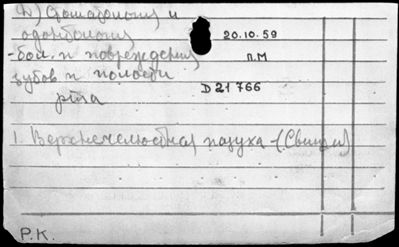 Д) Стоматология и
одонтология
20.10.59
-бол. и повреждения
п.м
зубов и полости
D 21 766
рта
1. Верхнечелюстная пазуха - (Свищи)
Р.К.